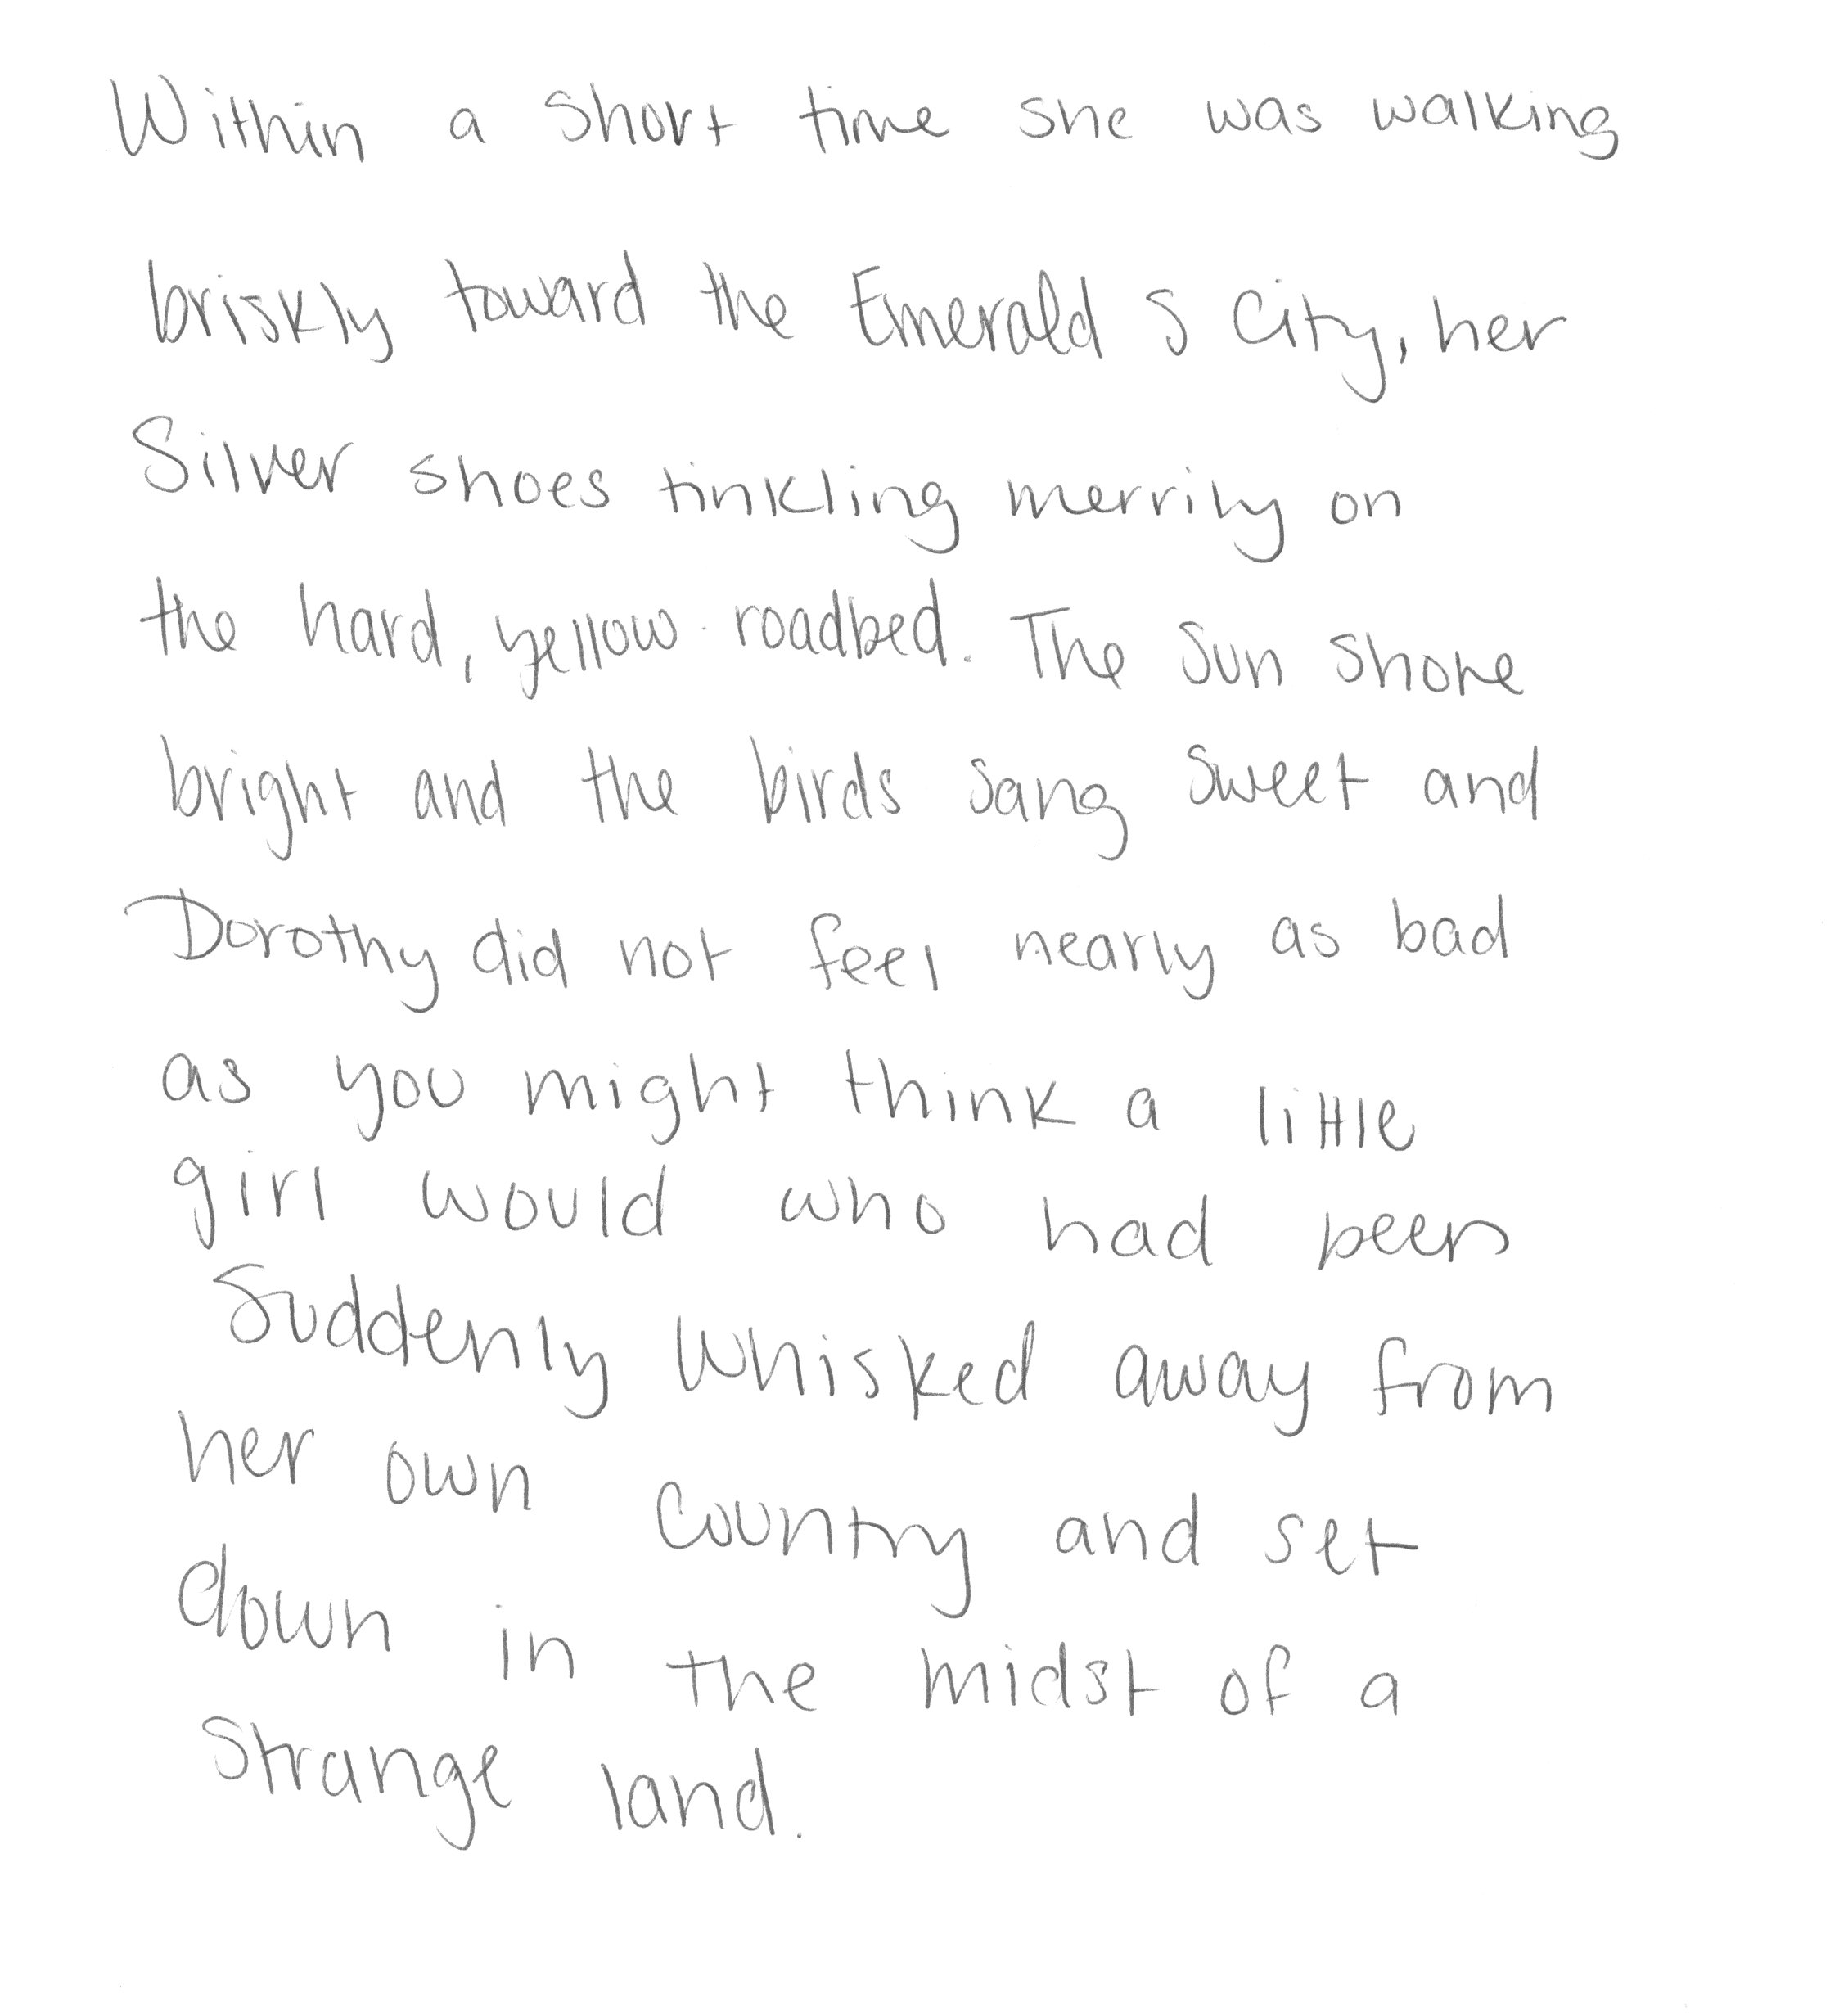 Within a short time she was walking
briskly toward the Emerald s City, her
Silver shoes tinkling merrily on
the hard, yellow roadbed. The sun shone
bright and the birds sang sweet and
Dorothy did not feel nearly as bad
as you might think a little
girl would who had been
suddenly whisked away from
her own country and set
down in the midst of a
strange land.